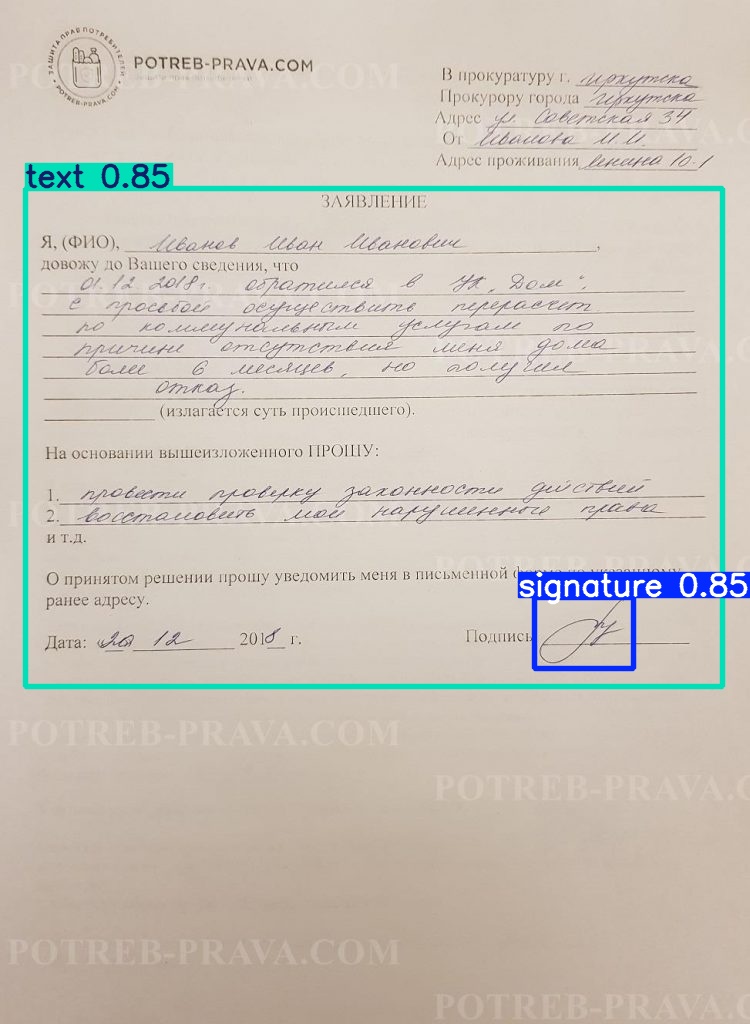 ЗАЩИТА ПРАВ ПОТРЕБИТЕЛЕЙ
POTREB-PRAVA.COM
POTREB-PRAVA.COM
В прокуратуру г. Иркутска
Прокурору города Иркутска
Адрес ул. Советская 34
От Иванова И.И.
Адрес проживания Ленина 10-1
text 0.85
ЗАЯВЛЕНИЕ
Я, (ФИО), Иванов Иван Иванович,
довожу до Вашего сведения, что
01.12.2018г. обратился в УК „Дом“,
с просьбой осуществить перерасчет
по коммунальным услугам по
причине отсутствия меня дома
более 6 месяцев, но получил
отказ.
(излагается суть происшедшего).
На основании вышеизложенного ПРОШУ:
1. провести проверку законности действий
2. восстановить мои нарушенные права
и т.д.
О принятом решении прошу уведомить меня в письменной указанному
ранее адресу.
signature 0.85
Дата: «20» 12 2018 г.
Подпись
POTREB-PRAVA.COM
POTREB-PRAVA.C
POTREB-PRAVA.COM
POTREB-PRAVA.C